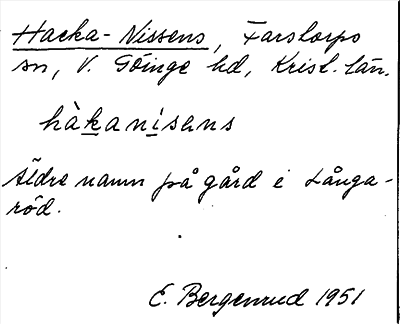 Hacka-Nissens, Farstorps
sn, V. Göinge hd, Krist. län.
hàkanisens
Äldre namn på gård i Långa-
röd.
E. Bergenrud 1951